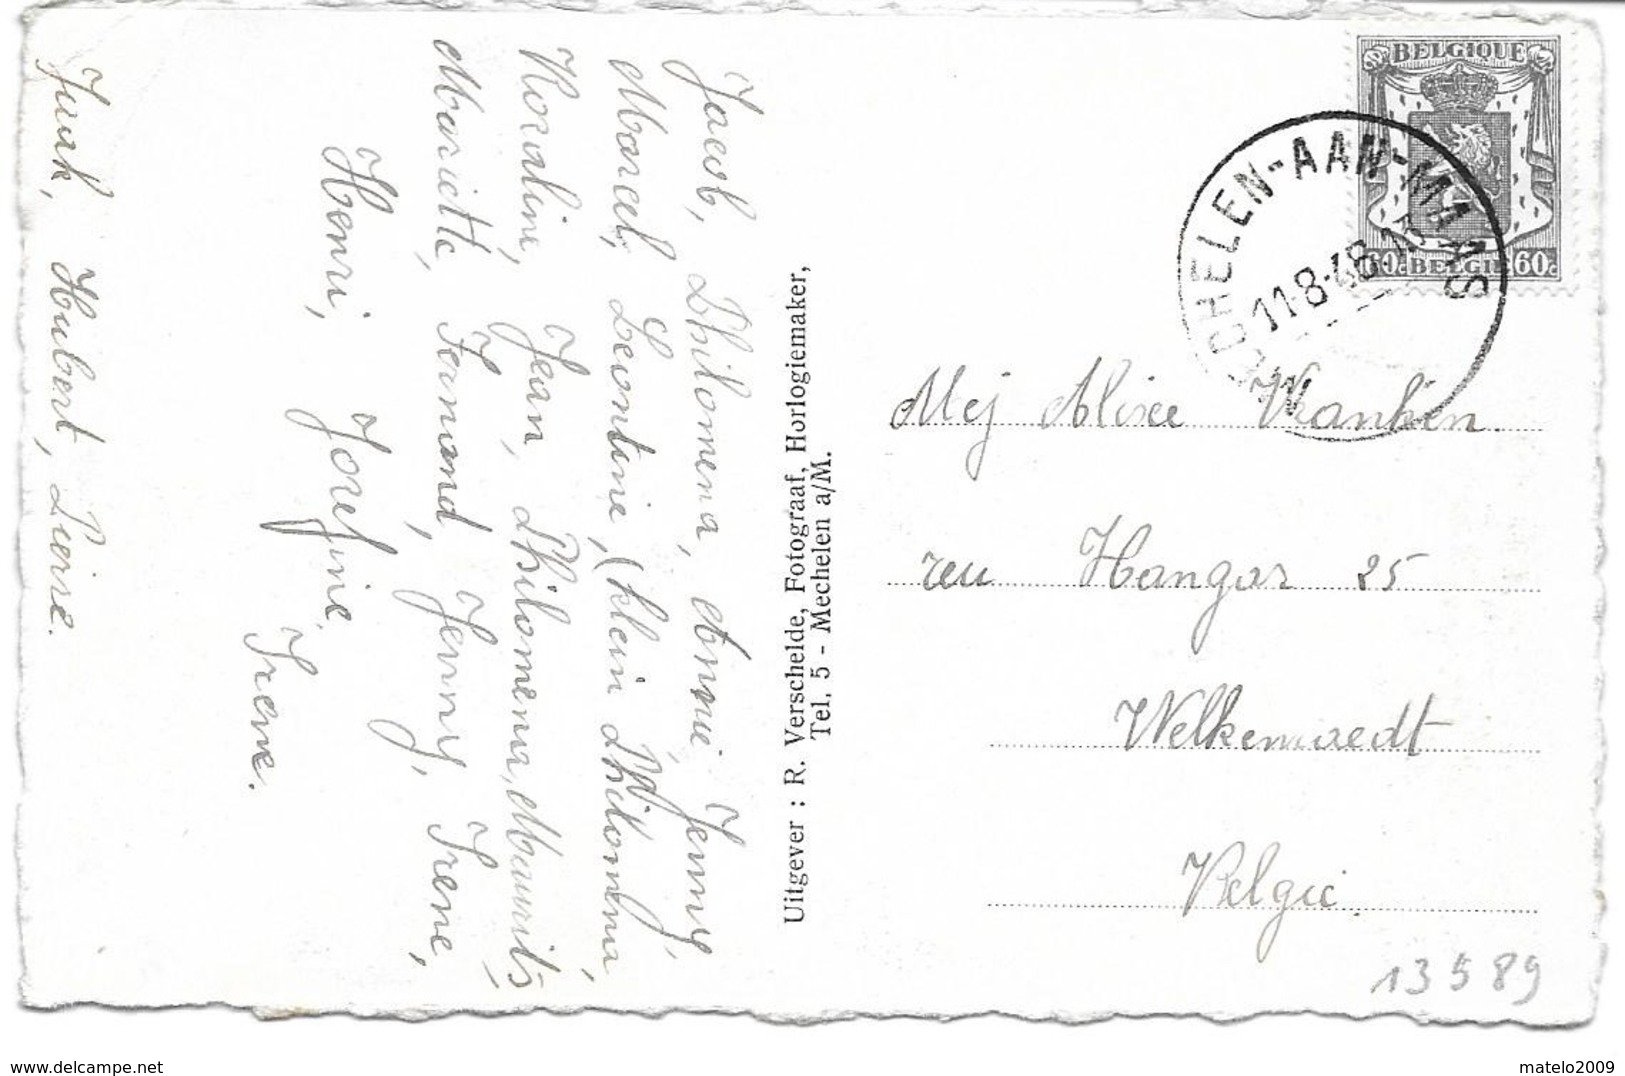 Jacob, Philomena, Annie Jenny,
Marcel, Leontine, (klein Philomena,
Rosaline, Jean, Philomena, Maurits,
Mariette, Fernand, Jenny, Irene,
Henri, Josefine
Irene.
Hubert, Pierre.
Uitgever : R. Verschelde, Fotograaf, Horlogiemaker,
Tel. 5 - Mechelen a/M.
BELGIQUE
60c BELGIE 60c
MECHELEN-AAN-MAAS
11-8-48
Mej Alice Vranken
reu Hangar 25
Welkenraedt
Belgie
13589
delcampe.net
matelo2009